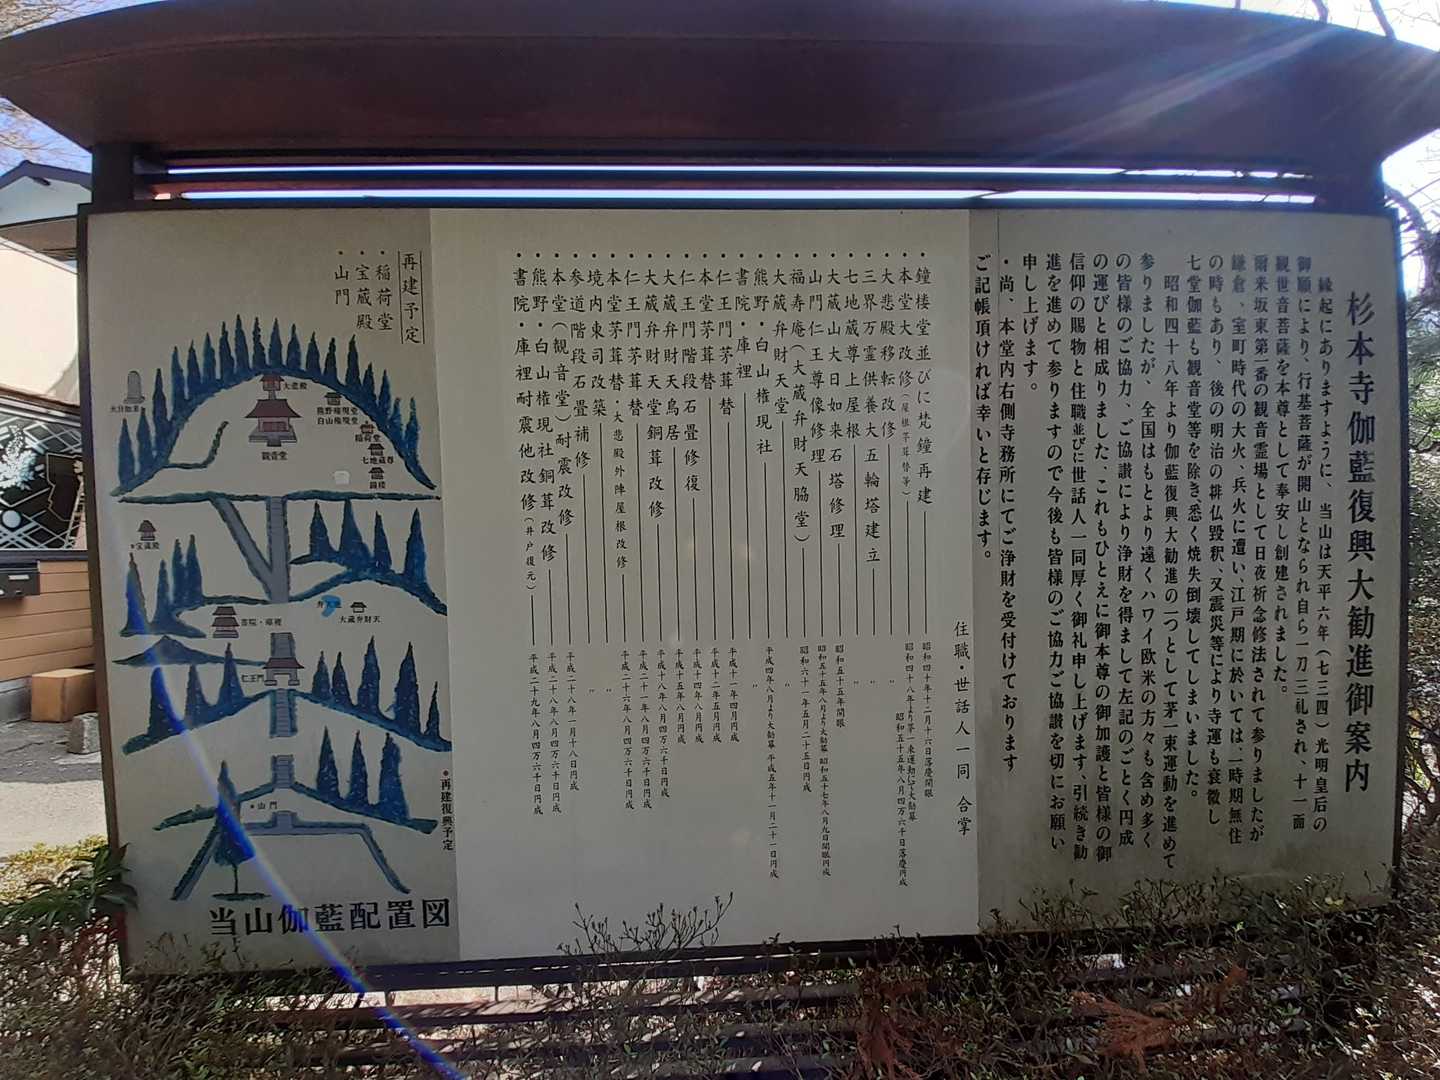 杉本寺伽藍復興大勧進御案内
縁起にありますように、当山は天平六年（七三四）光明皇后の
御願により、行基菩薩が開山となられ自ら一刀三礼され、十一面
観世音菩薩を本尊として奉安し創建されました。
爾来坂東第一番の観音霊場として日夜祈念修法されて参りましたが
鎌倉、室町時代の大火、兵火に遭い、江戸期に於いては、一時期無住
の時もあり、後の明治の排仏毀釈、又震災等により寺運も衰微し
七堂伽藍も観音堂等を除き、悉く焼失倒壊してしまいました。
昭和四十八年より伽藍復興大勧進の一つとして茅一束運動を進めて
参りましたが、全国はもとより遠くハワイ欧米の方々も含め多く
の皆様のご協力、ご協讃により浄財を得まして左記のごとく円成
の運びと相成りました、これもひとえに御本尊の御加護と皆様の御
信仰の賜物と住職並びに世話人一同厚く御礼申し上げます、引続き勧
進を進めて参りますので今後も皆様のご協力ご協讃を切にお願い
申し上げます。
・尚、本堂内右側寺務所にてご浄財を受付けております
ご記帳頂ければ幸いと存じます。
住職・世話人一同 合掌
・鐘楼堂並びに梵鐘再建 昭和四十年十二月十六日落慶開眼
・本堂大改修（屋根茅葺替等） 昭和四十八年より茅一束運動にて大勧募 昭和五十五年八月四万六千日落慶円成
・大悲殿移転改修 〃
・三界万霊供養大五輪塔建立 〃
・七地蔵尊上屋根 〃
・大蔵山大日如来石塔修理 昭和五十五年開眼
・山門仁王尊像修理 昭和五十五年八月より大勧募 昭和五十七年八月九日開眼円成
・福寿庵（大蔵弁財天脇堂） 昭和六十一年五月二十五日円成
・大蔵弁財天堂 〃
・熊野・白山権現社 平成四年八月より大勧募 平成五年十一月二十一日円成
・書院・庫裡 〃
・仁王門茅葺替 平成十一年四月円成
・本堂茅葺替 平成十二年五月円成
・仁王門階段石畳修復 平成十四年八月円成
・大蔵弁財天鳥居 平成十五年八月円成
・大蔵弁財天堂銅葺改修 平成十八年八月四万六千日円成
・仁王門茅葺替 平成二十一年八月四万六千日円成
・本堂茅葺替・大悲殿外陣屋根改修 平成二十六年八月四万六千日円成
・境内東司改築 〃
・参道階段石畳補修 〃
・本堂（観音堂）耐震改修 平成二十八年一月十八日円成
・熊野・白山権現社銅葺改修 平成二十八年八月四万六千日円成
・書院・庫裡耐震他改修（井戸復元） 平成二十九年八月四万六千日円成
再建予定
・稲荷堂
・宝蔵殿
・山門
大日如来
大悲殿
観音堂
熊野権現堂
白山権現堂
稲荷堂
七地蔵尊
鐘楼
●宝蔵殿
弁天池
大蔵弁財天
書院・庫裡
仁王門
●山門
●再建復興予定
当山伽藍配置図